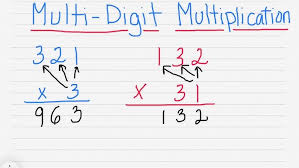 Multi-Digit Multiplication
321 132
x 3 x 31
963 132